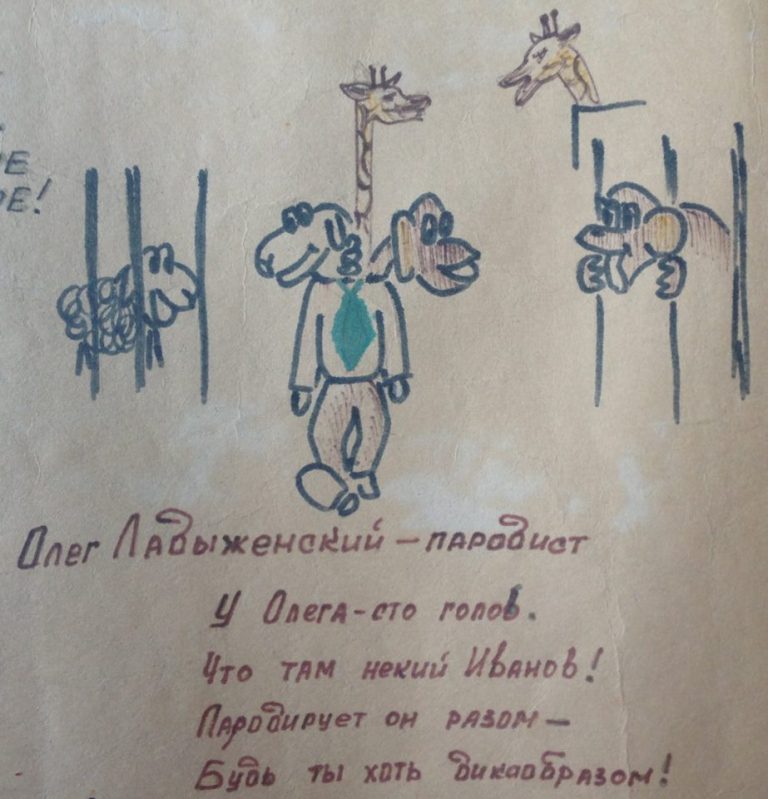 Олег Ладыженский – пародист
У Олега-сто голов.
Что там некий Иванов!
Пародирует он разом –
Будь ты хоть дикаобразом!